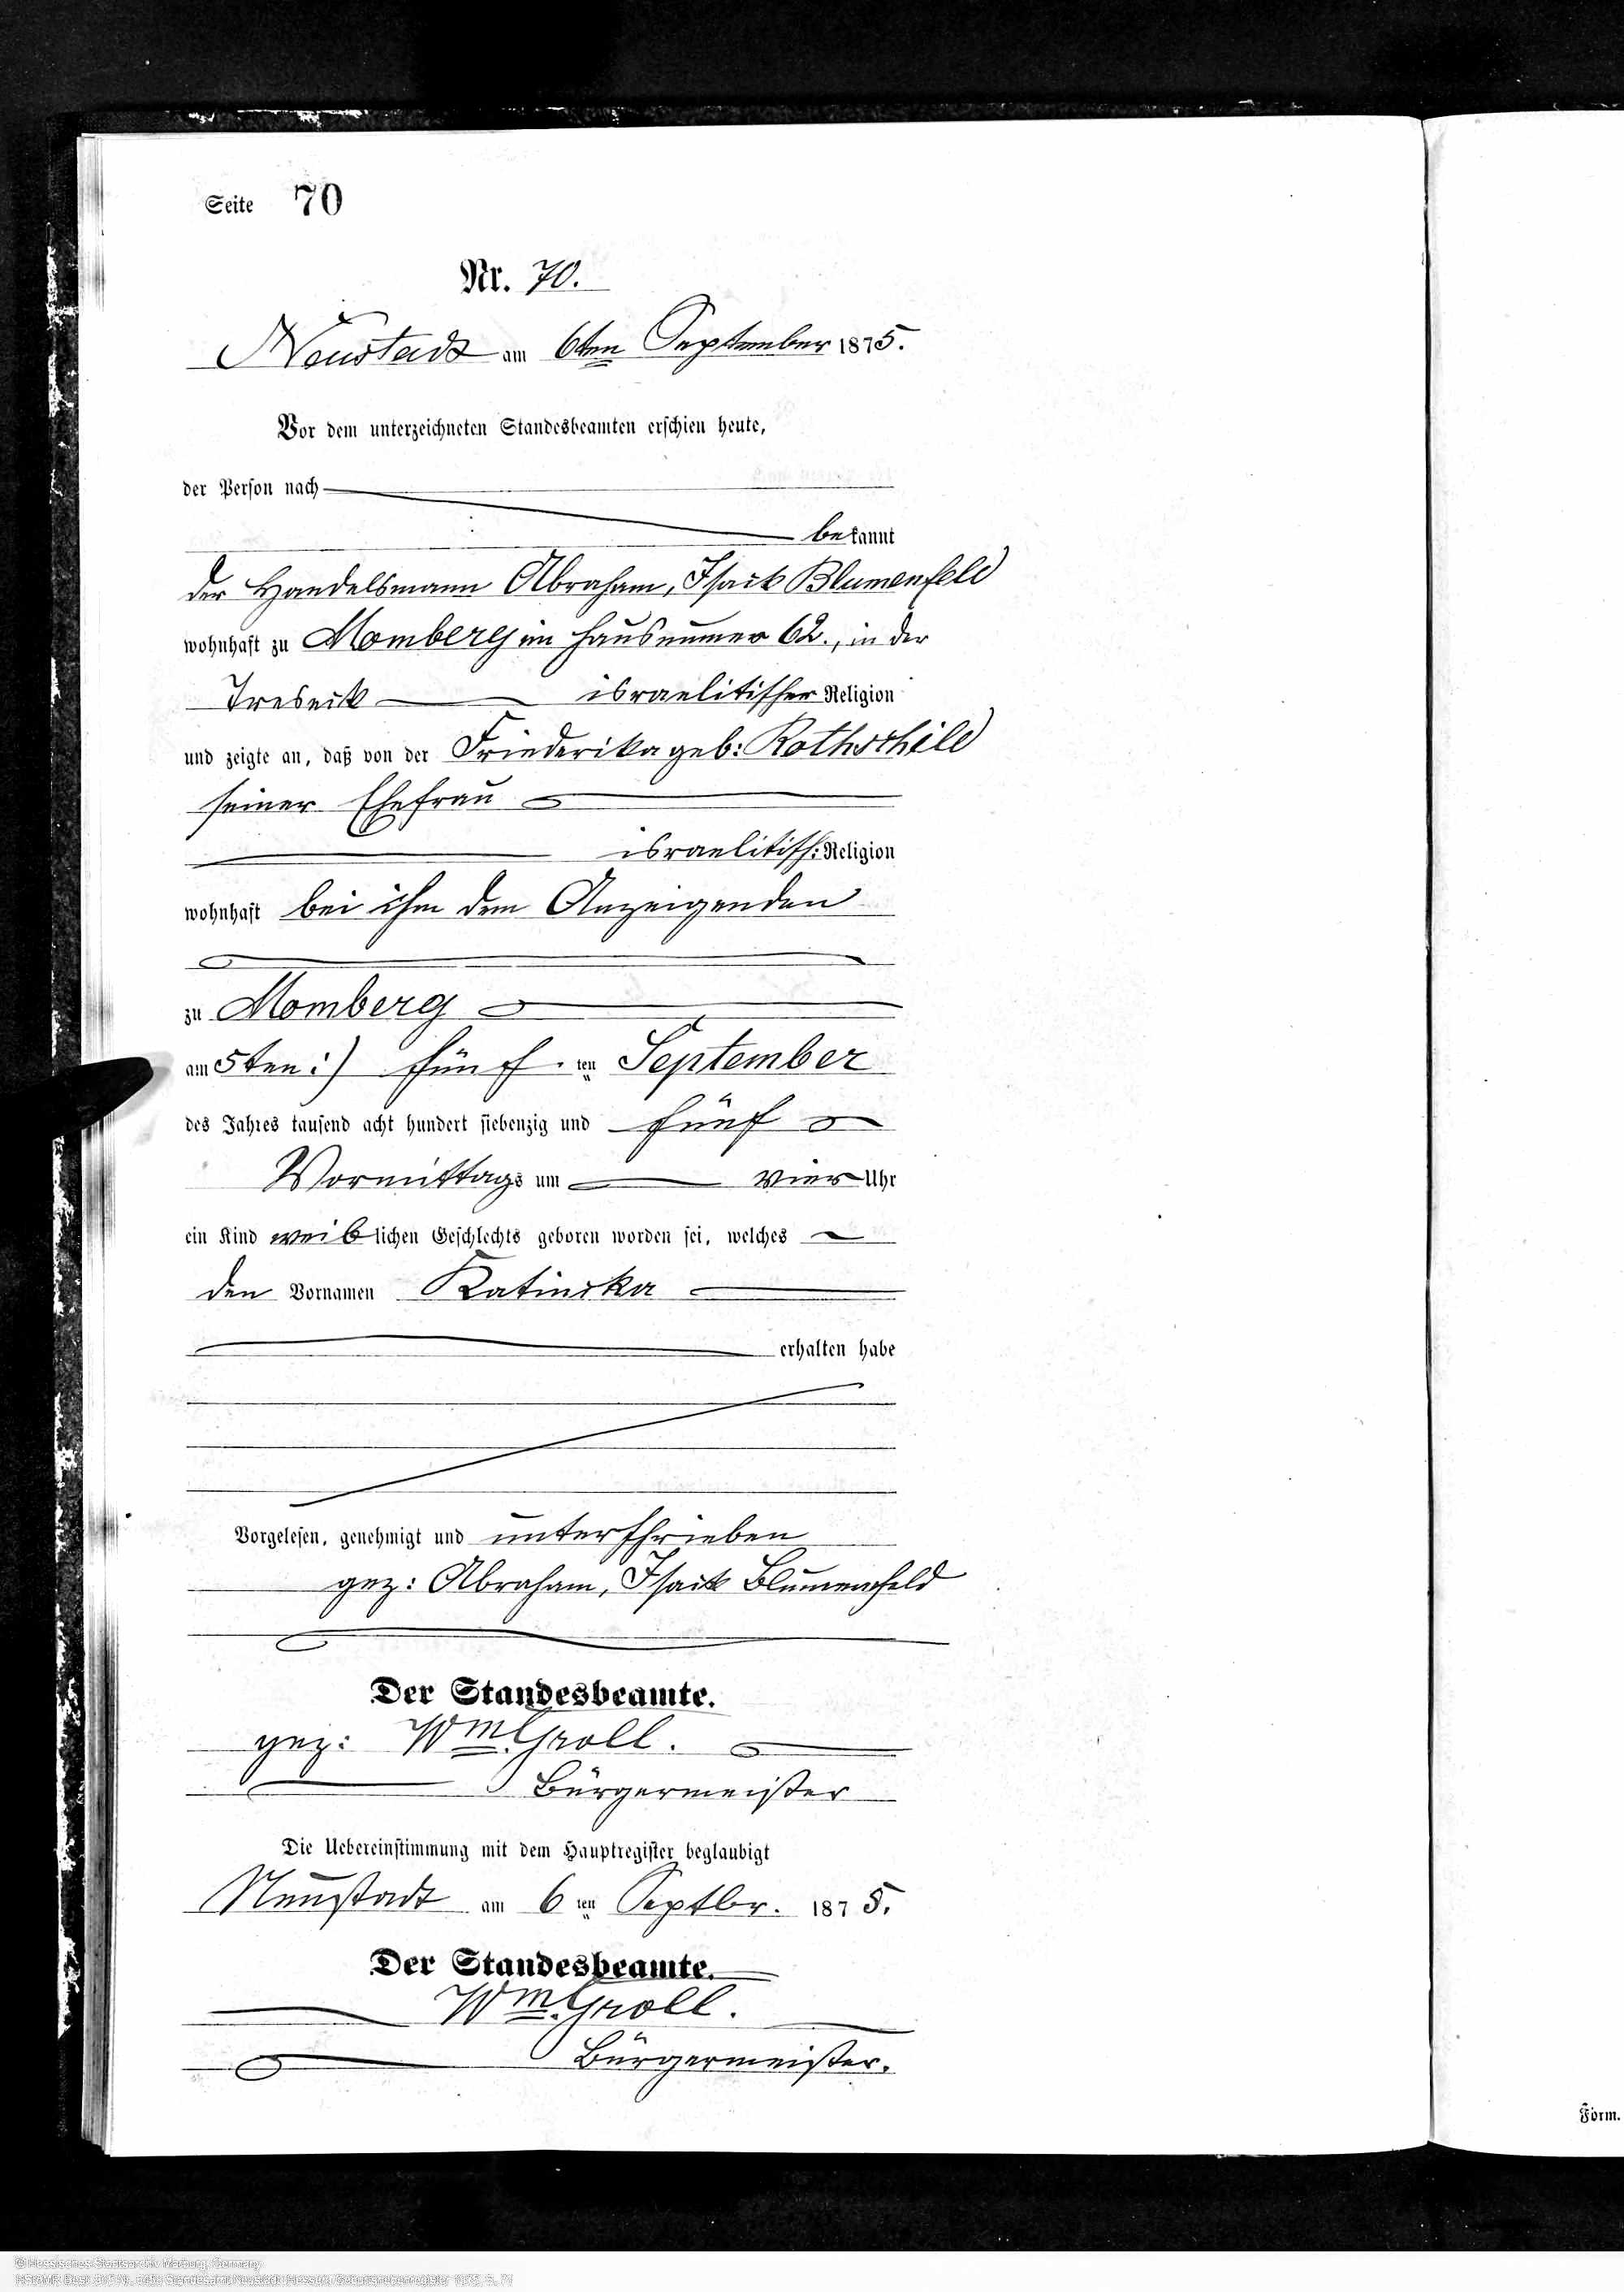 Seite 70
Nr. 70.
Neustadt am 6ten September 1875.
Vor dem unterzeichneten Standesbeamten erschien heute,
der Person nach
bekannt
der Handelsmann Abraham, Isack Blumenfeld
wohnhaft zu Momberg im Hausnumer 62., in der
israelitischer Religion
und zeigte an, daß von der Friederika geb: Rothschild
seiner Ehefrau
israelitisch: Religion
wohnhaft bei ihm dem Anzeigenden
zu Momberg
am 5ten :) fünf ten September
des Jahres tausend acht hundert siebenzig und fünf
Vormittags um vier Uhr
ein Kind weiblichen Geschlechts geboren worden sei, welches
den Vornamen Katinka
erhalten habe
Vorgelesen, genehmigt und unterschrieben
gez: Abraham, Isack Blumenfeld
Der Standesbeamte.
gez: Wm. Groll.
Bürgermeister
Die Uebereinstimmung mit dem Hauptregister beglaubigt
Neustadt am 6 ten Septbr. 1875.
Der Standesbeamte.
Wm. Groll.
Bürgermeister.
Form.
© Hessisches Staatsarchiv Marburg, Germany